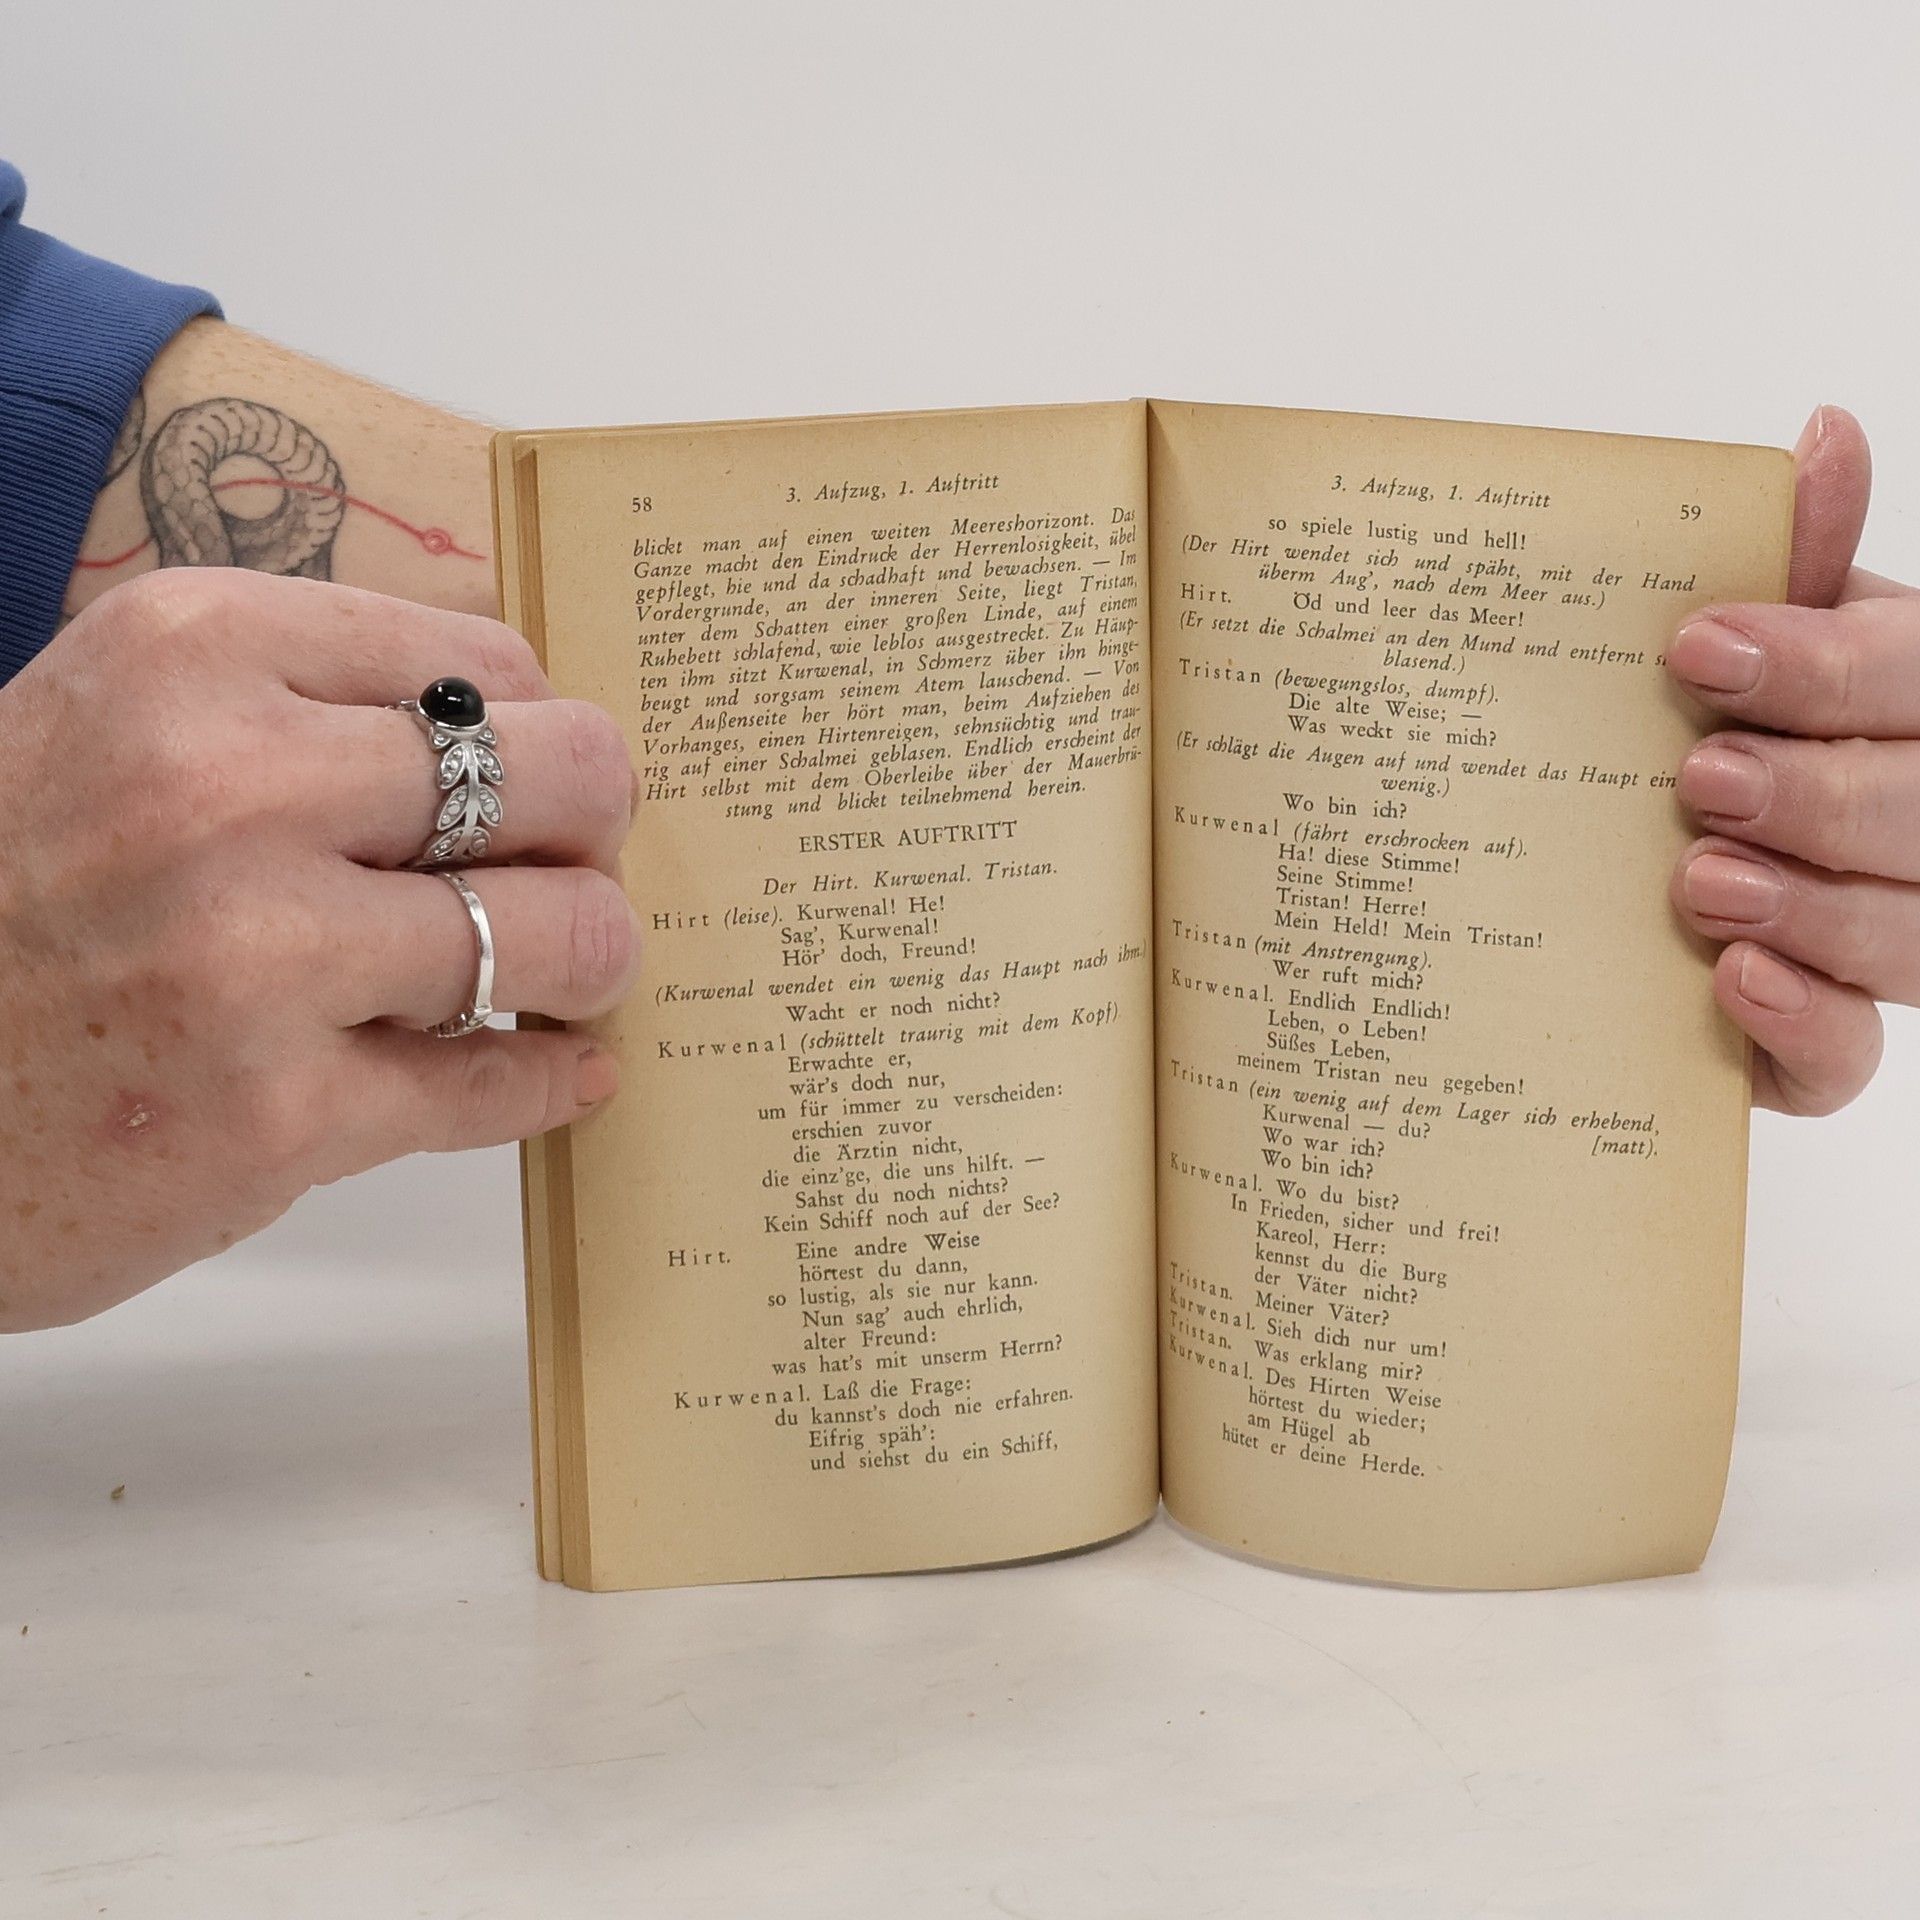 58
3. Aufzug, 1. Auftritt
blickt man auf einen weiten Meereshorizont. Das
Ganze macht den Eindruck der Herrenlosigkeit, übel
gepflegt, hie und da schadhaft und bewachsen. — Im
Vordergrunde, an der inneren Seite, liegt Tristan,
unter dem Schatten einer großen Linde, auf einem
Ruhebett schlafend, wie leblos ausgestreckt. Zu Häup-
ten ihm sitzt Kurwenal, in Schmerz über ihn hinge-
beugt und sorgsam seinem Atem lauschend. — Von
der Außenseite her hört man, beim Aufziehen des
Vorhanges, einen Hirtenreigen, sehnsüchtig und trau-
rig auf einer Schalmei geblasen. Endlich erscheint der
Hirt selbst mit dem Oberleibe über der Mauerbrü-
stung und blickt teilnehmend herein.
ERSTER AUFTRITT
Der Hirt. Kurwenal. Tristan.
Hirt (leise). Kurwenal! He!
Sag', Kurwenal!
Hör' doch, Freund!
(Kurwenal wendet ein wenig das Haupt nach ihm.)
Wacht er noch nicht?
Kurwenal (schüttelt traurig mit dem Kopf)
Erwachte er,
wär's doch nur,
um für immer zu verscheiden:
erschien zuvor
die Ärztin nicht,
die einz'ge, die uns hilft. —
Sahst du noch nichts?
Kein Schiff noch auf der See?
Hirt. Eine andre Weise
hörtest du dann,
so lustig, als sie nur kann.
Nun sag' auch ehrlich,
alter Freund:
was hat's mit unserm Herrn?
Kurwenal. Laß die Frage:
du kannst's doch nie erfahren.
Eifrig späh':
und siehst du ein Schiff,
3. Aufzug, 1. Auftritt
59
so spiele lustig und hell!
(Der Hirt wendet sich und späht, mit der Hand
überm Aug', nach dem Meer aus.)
Hirt. Öd und leer das Meer!
(Er setzt die Schalmei an den Mund und entfernt
blasend.)
Tristan (bewegungslos, dumpf).
Die alte Weise; —
Was weckt sie mich?
(Er schlägt die Augen auf und wendet das Haupt ein
wenig.)
Wo bin ich?
Kurwenal (fährt erschrocken auf).
Ha! diese Stimme!
Seine Stimme!
Tristan! Herre!
Mein Held! Mein Tristan!
Tristan (mit Anstrengung).
Wer ruft mich?
Kurwenal. Endlich Endlich!
Leben, o Leben!
Süßes Leben,
meinem Tristan neu gegeben!
Tristan (ein wenig auf dem Lager sich erhebend,
Kurwenal — du? [matt).
Wo war ich?
Wo bin ich?
Kurwenal. Wo du bist?
In Frieden, sicher und frei!
Kareol, Herr:
kennst du die Burg
der Väter nicht?
Tristan. Meiner Väter?
Kurwenal. Sieh dich nur um!
Tristan. Was erklang mir?
Kurwenal. Des Hirten Weise
hörtest du wieder;
am Hügel ab
hütet er deine Herde.